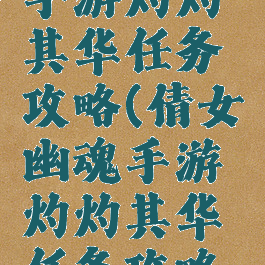 手游灼灼
其华任务
攻略(倩女
幽魂手游
灼灼其华
任务攻略